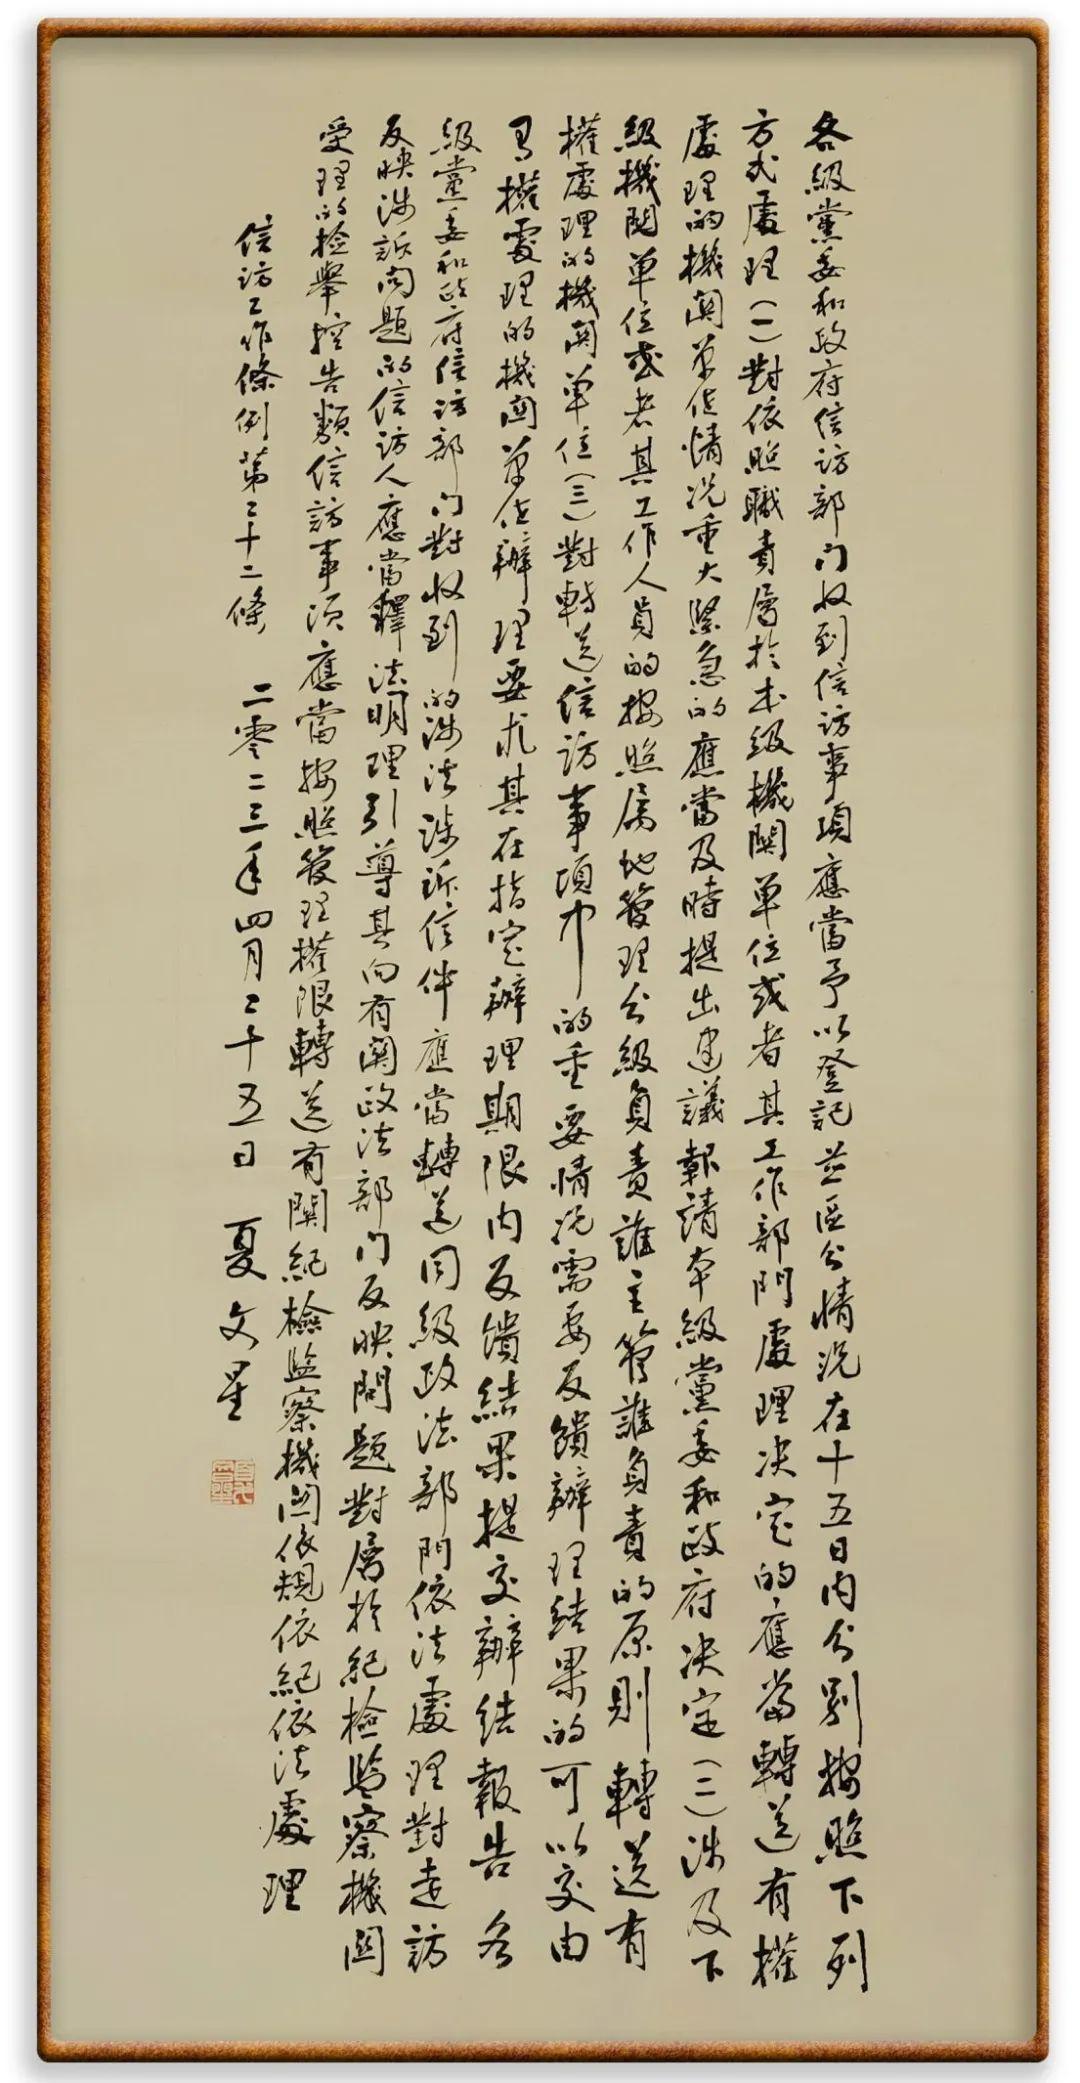 各級黨委和政府信訪部门收到信訪事項應當予以登記並區分情況在十五日内分别按照下列
方式處理（一）對依照職責屬於本級機關單位或者其工作部門處理决定的應當轉送有權
處理的機關单位情况重大緊急的應當及時提出建議報請本級黨委和政府决定（二）涉及下
級機関单位或者其工作人員的按照属地管理分級負責誰主管誰負責的原則轉送有
權處理的機関单位（三）對轉送信訪事項中的重要情况需要反饋辦理結果的可以交由
有權處理的機関单位辦理要求其在指定辦理期限内反饋結果提交辦結報告 各
級黨委和政府信訪部门對收到的涉法涉訴信件應當轉送同級政法部門依法處理對走訪
反映涉訴問題的信訪人應當釋法明理引導其向有關政法部门反映問題對屬於紀檢監察機関
受理的检舉控告類信訪事项應當按照管理權限轉送有關紀檢監察機関依規依紀依法處理
信訪工作條例第二十二條 二零二三年四月二十五日 夏文星